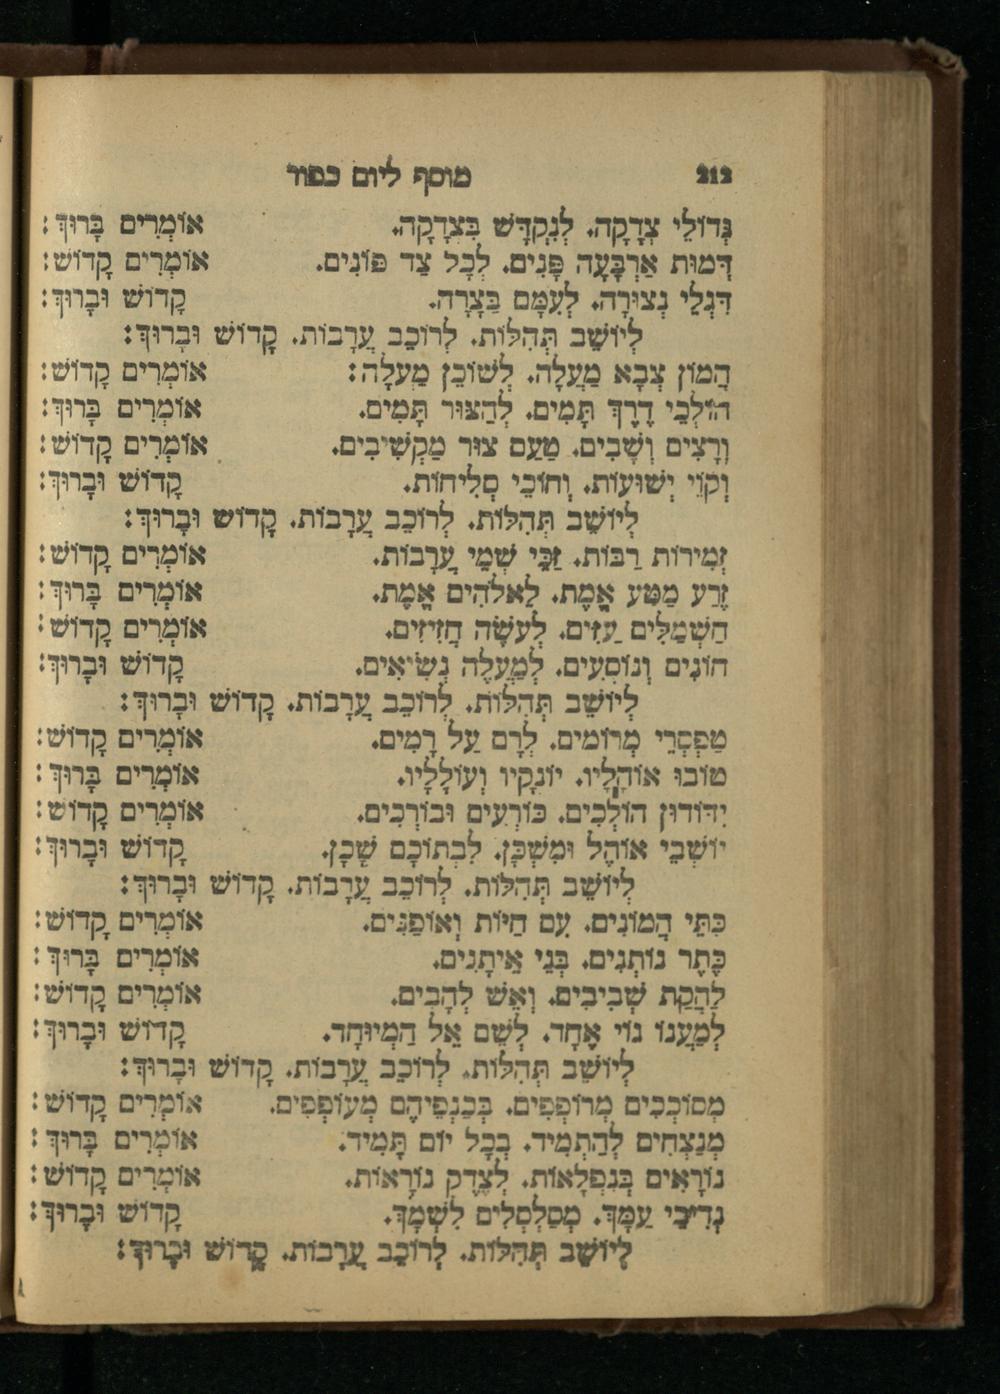 212 מוסף ליום כפור
גְּדוֹלֵי צְדָקָה. לְנִקְדָּשׁ בִּצְדָקָה. אוֹמְרִים בָּרוּךְ:
דְּמוּת אַרְבָּעָה פָּנִים. לְכָל צַד פּוֹנִים. אוֹמְרִים קָדוֹשׁ:
דִּגְלֵי נְצוּרָה. לְעִמָּם בַּצָּרָה. קָדוֹשׁ וּבָרוּךְ:
לְיוֹשֵׁב תְּהִלּוֹת. לְרוֹכֵב עֲרָבוֹת. קָדוֹשׁ וּבָרוּךְ:
הֲמוֹן צְבָא מַעְלָה. לְשׁוֹכֵן מַעְלָה: אוֹמְרִים קָדוֹשׁ:
הוֹלְכֵי דֶרֶךְ תָּמִים. לְהַצּוּר תָּמִים. אוֹמְרִים בָּרוּךְ:
וְרָצִים וְשָׁבִים. טַעַם צוּר מַקְשִׁיבִים. אוֹמְרִים קָדוֹשׁ:
וְקוֹוֵי יְשׁוּעוֹת. וְחוֹכֵי סְלִיחוֹת. קָדוֹשׁ וּבָרוּךְ:
לְיוֹשֵׁב תְּהִלּוֹת. לְרוֹכֵב עֲרָבוֹת. קָדוֹשׁ וּבָרוּךְ:
זְמִירוֹת רַבּוֹת. זַכֵּי שְׁמֵי עֲרָבוֹת. אוֹמְרִים קָדוֹשׁ:
זֶרַע מַטַּע אֱמֶת. לֵאלֹהִים אֱמֶת. אוֹמְרִים בָּרוּךְ:
חַשְׁמַלִּים עַזִּים. לְעֹשֶׂה חֲזִיזִים. אוֹמְרִים קָדוֹשׁ:
חוֹנִים וְנוֹסְעִים. לְמַעֲלֶה נְשִׂיאִים. קָדוֹשׁ וּבָרוּךְ:
לְיוֹשֵׁב תְּהִלּוֹת. לְרוֹכֵב עֲרָבוֹת. קָדוֹשׁ וּבָרוּךְ:
טַפְסְרֵי מְרוֹמִים. לְרָם עַל רָמִים. אוֹמְרִים קָדוֹשׁ:
טוֹבוּ אוֹהָלָיו. יוֹנְקָיו וְעוֹלָלָיו. אוֹמְרִים בָּרוּךְ:
יִדּוֹדוּן הוֹלְכִים. כּוֹרְעִים וּבוֹרְכִים. אוֹמְרִים קָדוֹשׁ:
יוֹשְׁבֵי אוֹהֶל וּמִשְׁכָּן. לִבְתוֹכָם שָׁכָן. קָדוֹשׁ וּבָרוּךְ:
לְיוֹשֵׁב תְּהִלּוֹת. לְרוֹכֵב עֲרָבוֹת. קָדוֹשׁ וּבָרוּךְ:
כִּתֵּי הֲמוֹנִים. עִם חַיּוֹת וְאוֹפַנִּים. אוֹמְרִים קָדוֹשׁ:
כֶּתֶר נוֹתְנִים. בְּנֵי אֵיתָנִים. אוֹמְרִים בָּרוּךְ:
לַהֲקַת שְׁבִיבִים. וְאֵשׁ לְהָבִים. אוֹמְרִים קָדוֹשׁ:
לְמַעֲנוֹ גּוֹי אֶחָד. לְשֵׁם אֵל הַמְיוּחָד. קָדוֹשׁ וּבָרוּךְ:
לְיוֹשֵׁב תְּהִלּוֹת. לְרוֹכֵב עֲרָבוֹת. קָדוֹשׁ וּבָרוּךְ:
מְסוֹכְכִים מְרוֹפְפִים. בְּכַנְפֵיהֶם מְעוֹפְפִים. אוֹמְרִים קָדוֹשׁ:
מְנַצְּחִים לְהַתְמִיד. בְּכָל יוֹם תָּמִיד. אוֹמְרִים בָּרוּךְ:
נוֹרָאִים בְּנִפְלָאוֹת. לְצֶדֶק נוֹרָאוֹת. אוֹמְרִים קָדוֹשׁ:
נְדִיבֵי עַמָּךְ. מְסַלְסְלִים לִשְׁמָךְ. קָדוֹשׁ וּבָרוּךְ:
לְיוֹשֵׁב תְּהִלּוֹת. לְרוֹכֵב עֲרָבוֹת. קָדוֹשׁ וּבָרוּךְ: